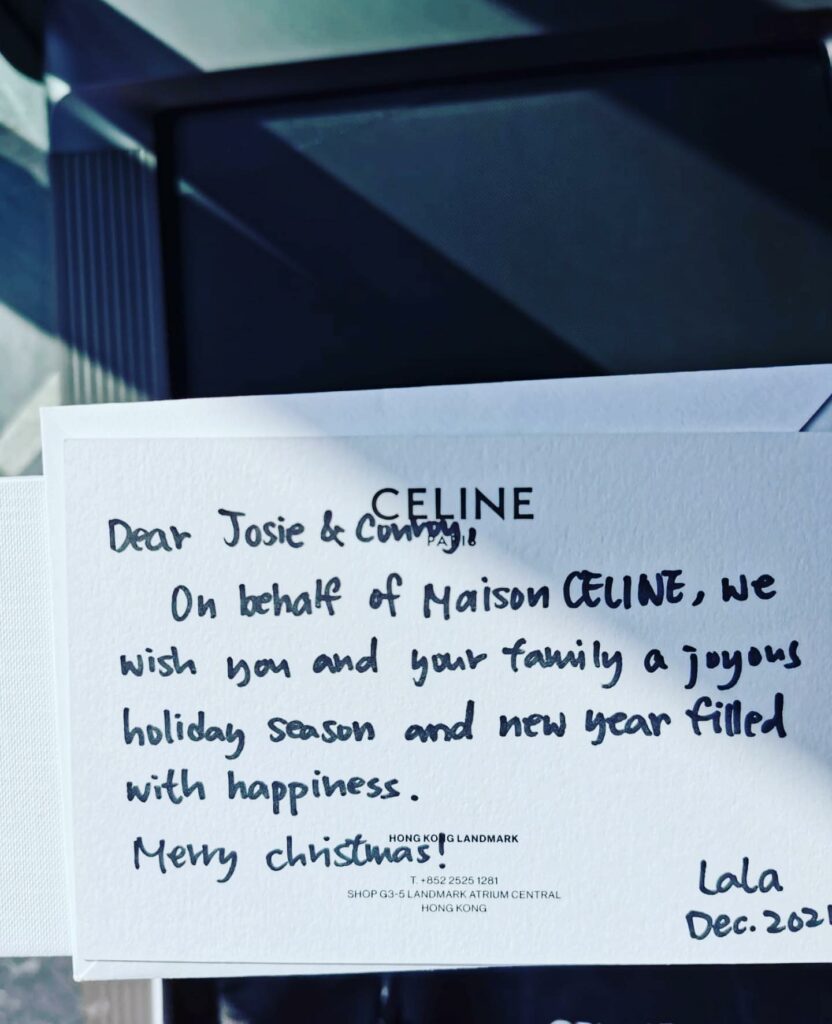 CELINE
PARIS
Dear Josie & Conroy,
On behalf of Maison CELINE, we
wish you and your family a joyous
holiday season and new year filled
with happiness.
Merry christmas!
HONG KONG LANDMARK
T. +852 2525 1281
SHOP G3-5 LANDMARK ATRIUM CENTRAL
HONG KONG
Lala
Dec. 2021